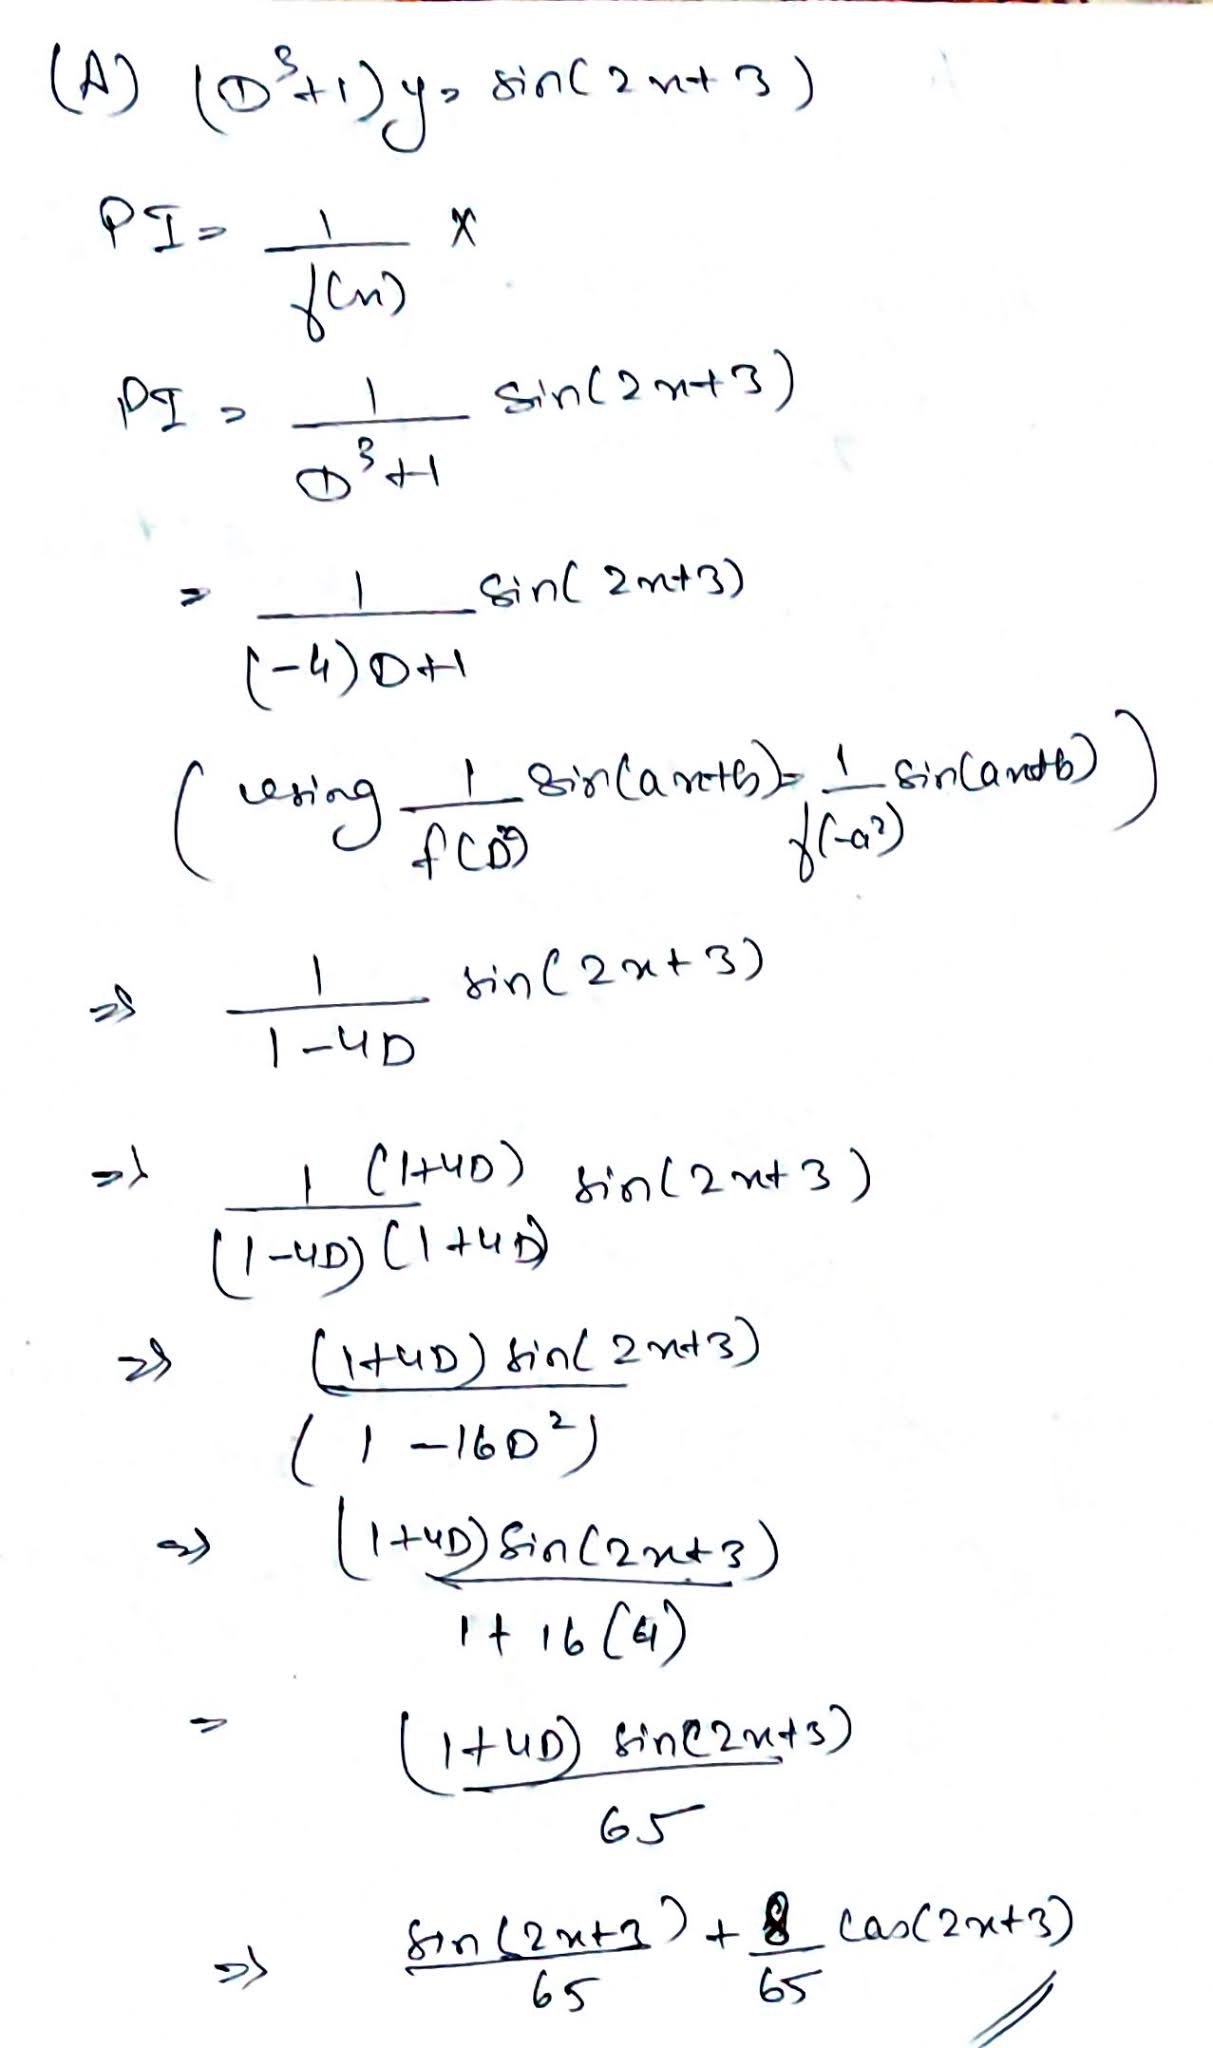 (A) (D³+1)y = sin(2x+3)
PI = 1/f(x) X
PI = 1/(D³+1) sin(2x+3)
= 1/((-4)D+1) sin(2x+3)
(using 1/f(D²) sin(ax+b) = 1/f(-a²) sin(ax+b))
⇒ 1/(1-4D) sin(2x+3)
⇒ 1 (1+4D)/((1-4D)(1+4D)) sin(2x+3)
⇒ (1+4D) sin(2x+3)/(1-16D²)
⇒ (1+4D) sin(2x+3)/(1+16(4))
= (1+4D) sin(2x+3)/65
⇒ sin(2x+3)/65 + 8/65 cos(2x+3)